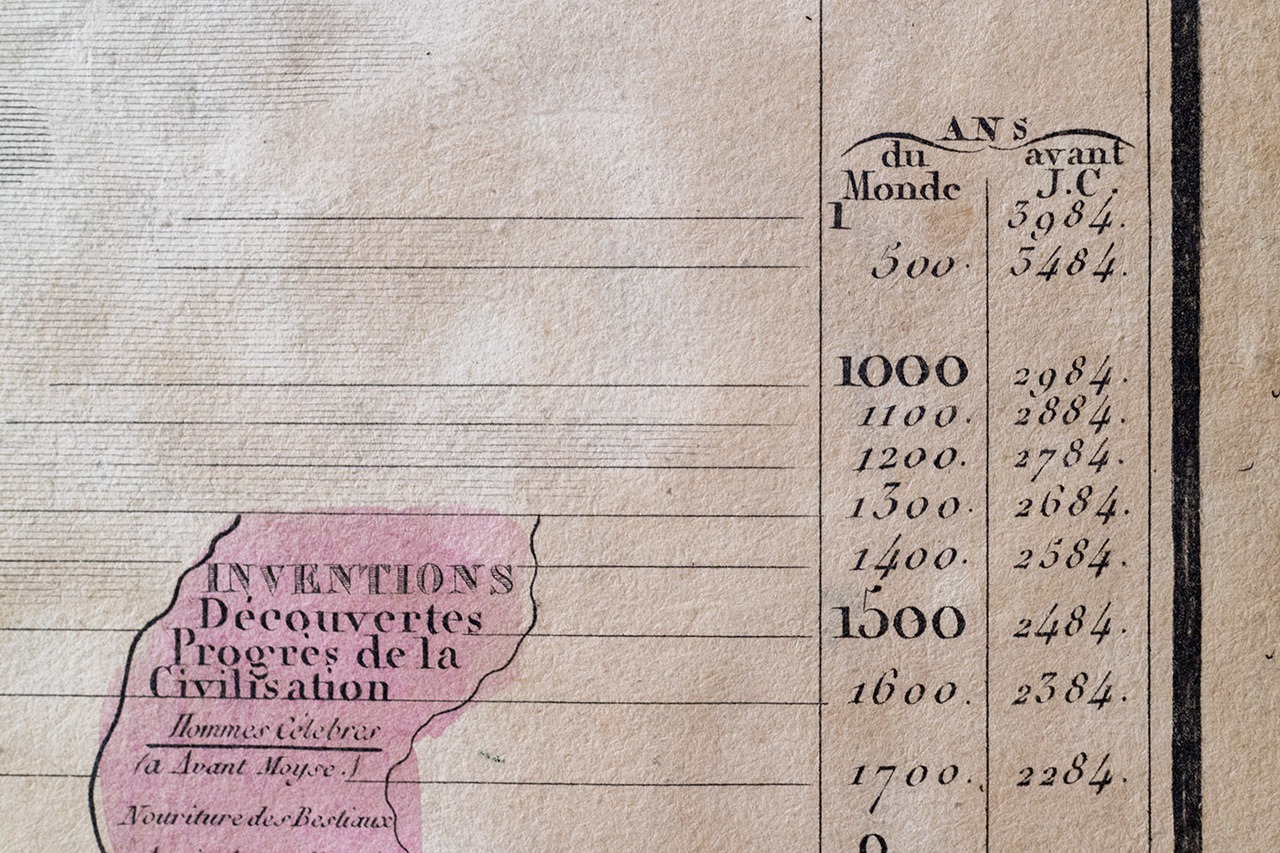 ANS
du Monde avant J.C.
1 3984.
500. 3484.
1000 2984.
1100. 2884.
1200. 2784.
1300. 2684.
1400. 2584.
1500 2484.
1600. 2384.
1700. 2284.
INVENTIONS
Découvertes
Progrès de la
Civilisation
Hommes Célebres
(a Avant Moyse.)
Nouriture des Bestiaux